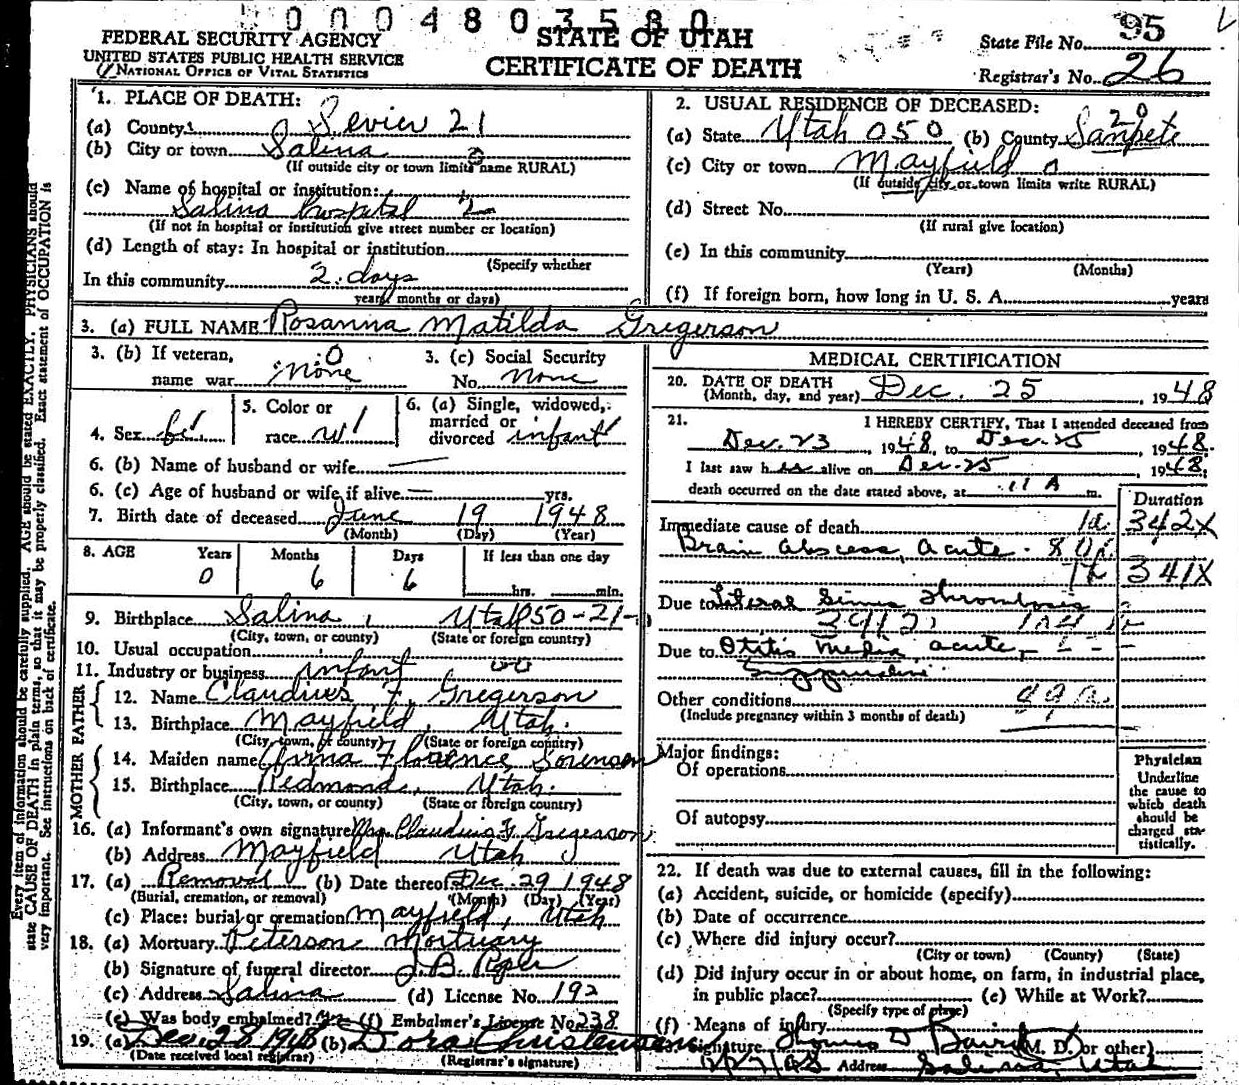 0004803580
95
FEDERAL SECURITY AGENCY
UNITED STATES PUBLIC HEALTH SERVICE
NATIONAL OFFICE OF VITAL STATISTICS
STATE OF UTAH
CERTIFICATE OF DEATH
State File No.
Registrar's No. 26
Every item of information should be carefully supplied. AGE should be stated EXACTLY. PHYSICIANS should
state CAUSE OF DEATH in plain terms, so that it may be properly classified. Exact statement of OCCUPATION is
very important. See instructions on back of certificate.
1. PLACE OF DEATH:
(a) County Sevier 21
(b) City or town Salina
(If outside city or town limits name RURAL)
(c) Name of hospital or institution:
Salina hospital 2
(If not in hospital or institution give street number or location)
(d) Length of stay: In hospital or institution
(Specify whether
In this community 2 days
years months or days)
2. USUAL RESIDENCE OF DECEASED:
(a) State Utah 050 (b) County Sanpete 20
(c) City or town Mayfield 0
(If outside city or town limits write RURAL)
(d) Street No.
(If rural give location)
(e) In this community
(Years) (Months)
(f) If foreign born, how long in U. S. A. years
3. (a) FULL NAME Rosanna Matilda Gregerson
3. (b) If veteran, 0
name war none
3. (c) Social Security
No. none
4. Sex fe 1
5. Color or
race w 1
6. (a) Single, widowed,
married or
divorced infant
6. (b) Name of husband or wife
6. (c) Age of husband or wife if alive yrs.
7. Birth date of deceased June 19 1948
(Month) (Day) (Year)
8. AGE Years Months Days If less than one day
0 6 6 hrs. min.
9. Birthplace Salina, Utah 050-21-
(City, town, or county) (State or foreign country)
10. Usual occupation
11. Industry or business infant
FATHER
12. Name Claudius F. Gregerson
13. Birthplace Mayfield, Utah.
(City, town, or county) (State or foreign country)
MOTHER
14. Maiden name Florence Sorenson
15. Birthplace Redmond, Utah.
(City, town, or county) (State or foreign country)
16. (a) Informant's own signature Mrs. Claudius F Gregerson
(b) Address Mayfield Utah
17. (a) Removal (b) Date thereof Dec. 29 1948
(Burial, cremation, or removal) (Month) (Day) (Year)
(c) Place: burial or cremation Mayfield, Utah
18. (a) Mortuary Peterson Mortuary
(b) Signature of funeral director J. B. Roper
(c) Address Salina (d) License No. 192
(e) Was body embalmed? (f) Embalmer's License No. 238
19. (a) Dec. 28 1948 (b) Dora Christensen
(Date received local registrar) (Registrar's signature)
MEDICAL CERTIFICATION
20. DATE OF DEATH
(Month, day, and year) Dec. 25, 1948
21. I HEREBY CERTIFY, That I attended deceased from
Dec. 23, 1948, to Dec. 25, 1948.
I last saw her alive on Dec. 25 1948.
death occurred on the date stated above, at 11 A m.
Duration
Immediate cause of death 342X
Brain abscess, acute
341X
Due to Lateral Sinus Thrombosis
Due to Otitis media, acute,
Other conditions
(Include pregnancy within 3 months of death)
Major findings:
Of operations
Of autopsy
Physician
Underline
the cause to
which death
should be
charged sta-
tistically.
22. If death was due to external causes, fill in the following:
(a) Accident, suicide, or homicide (specify)
(b) Date of occurrence
(c) Where did injury occur?
(City or town) (County) (State)
(d) Did injury occur in or about home, on farm, in industrial place,
in public place? (e) While at Work?
(Specify type of place)
(f) Means of injury
Signature (M. D. or other)
Address Salina, Utah